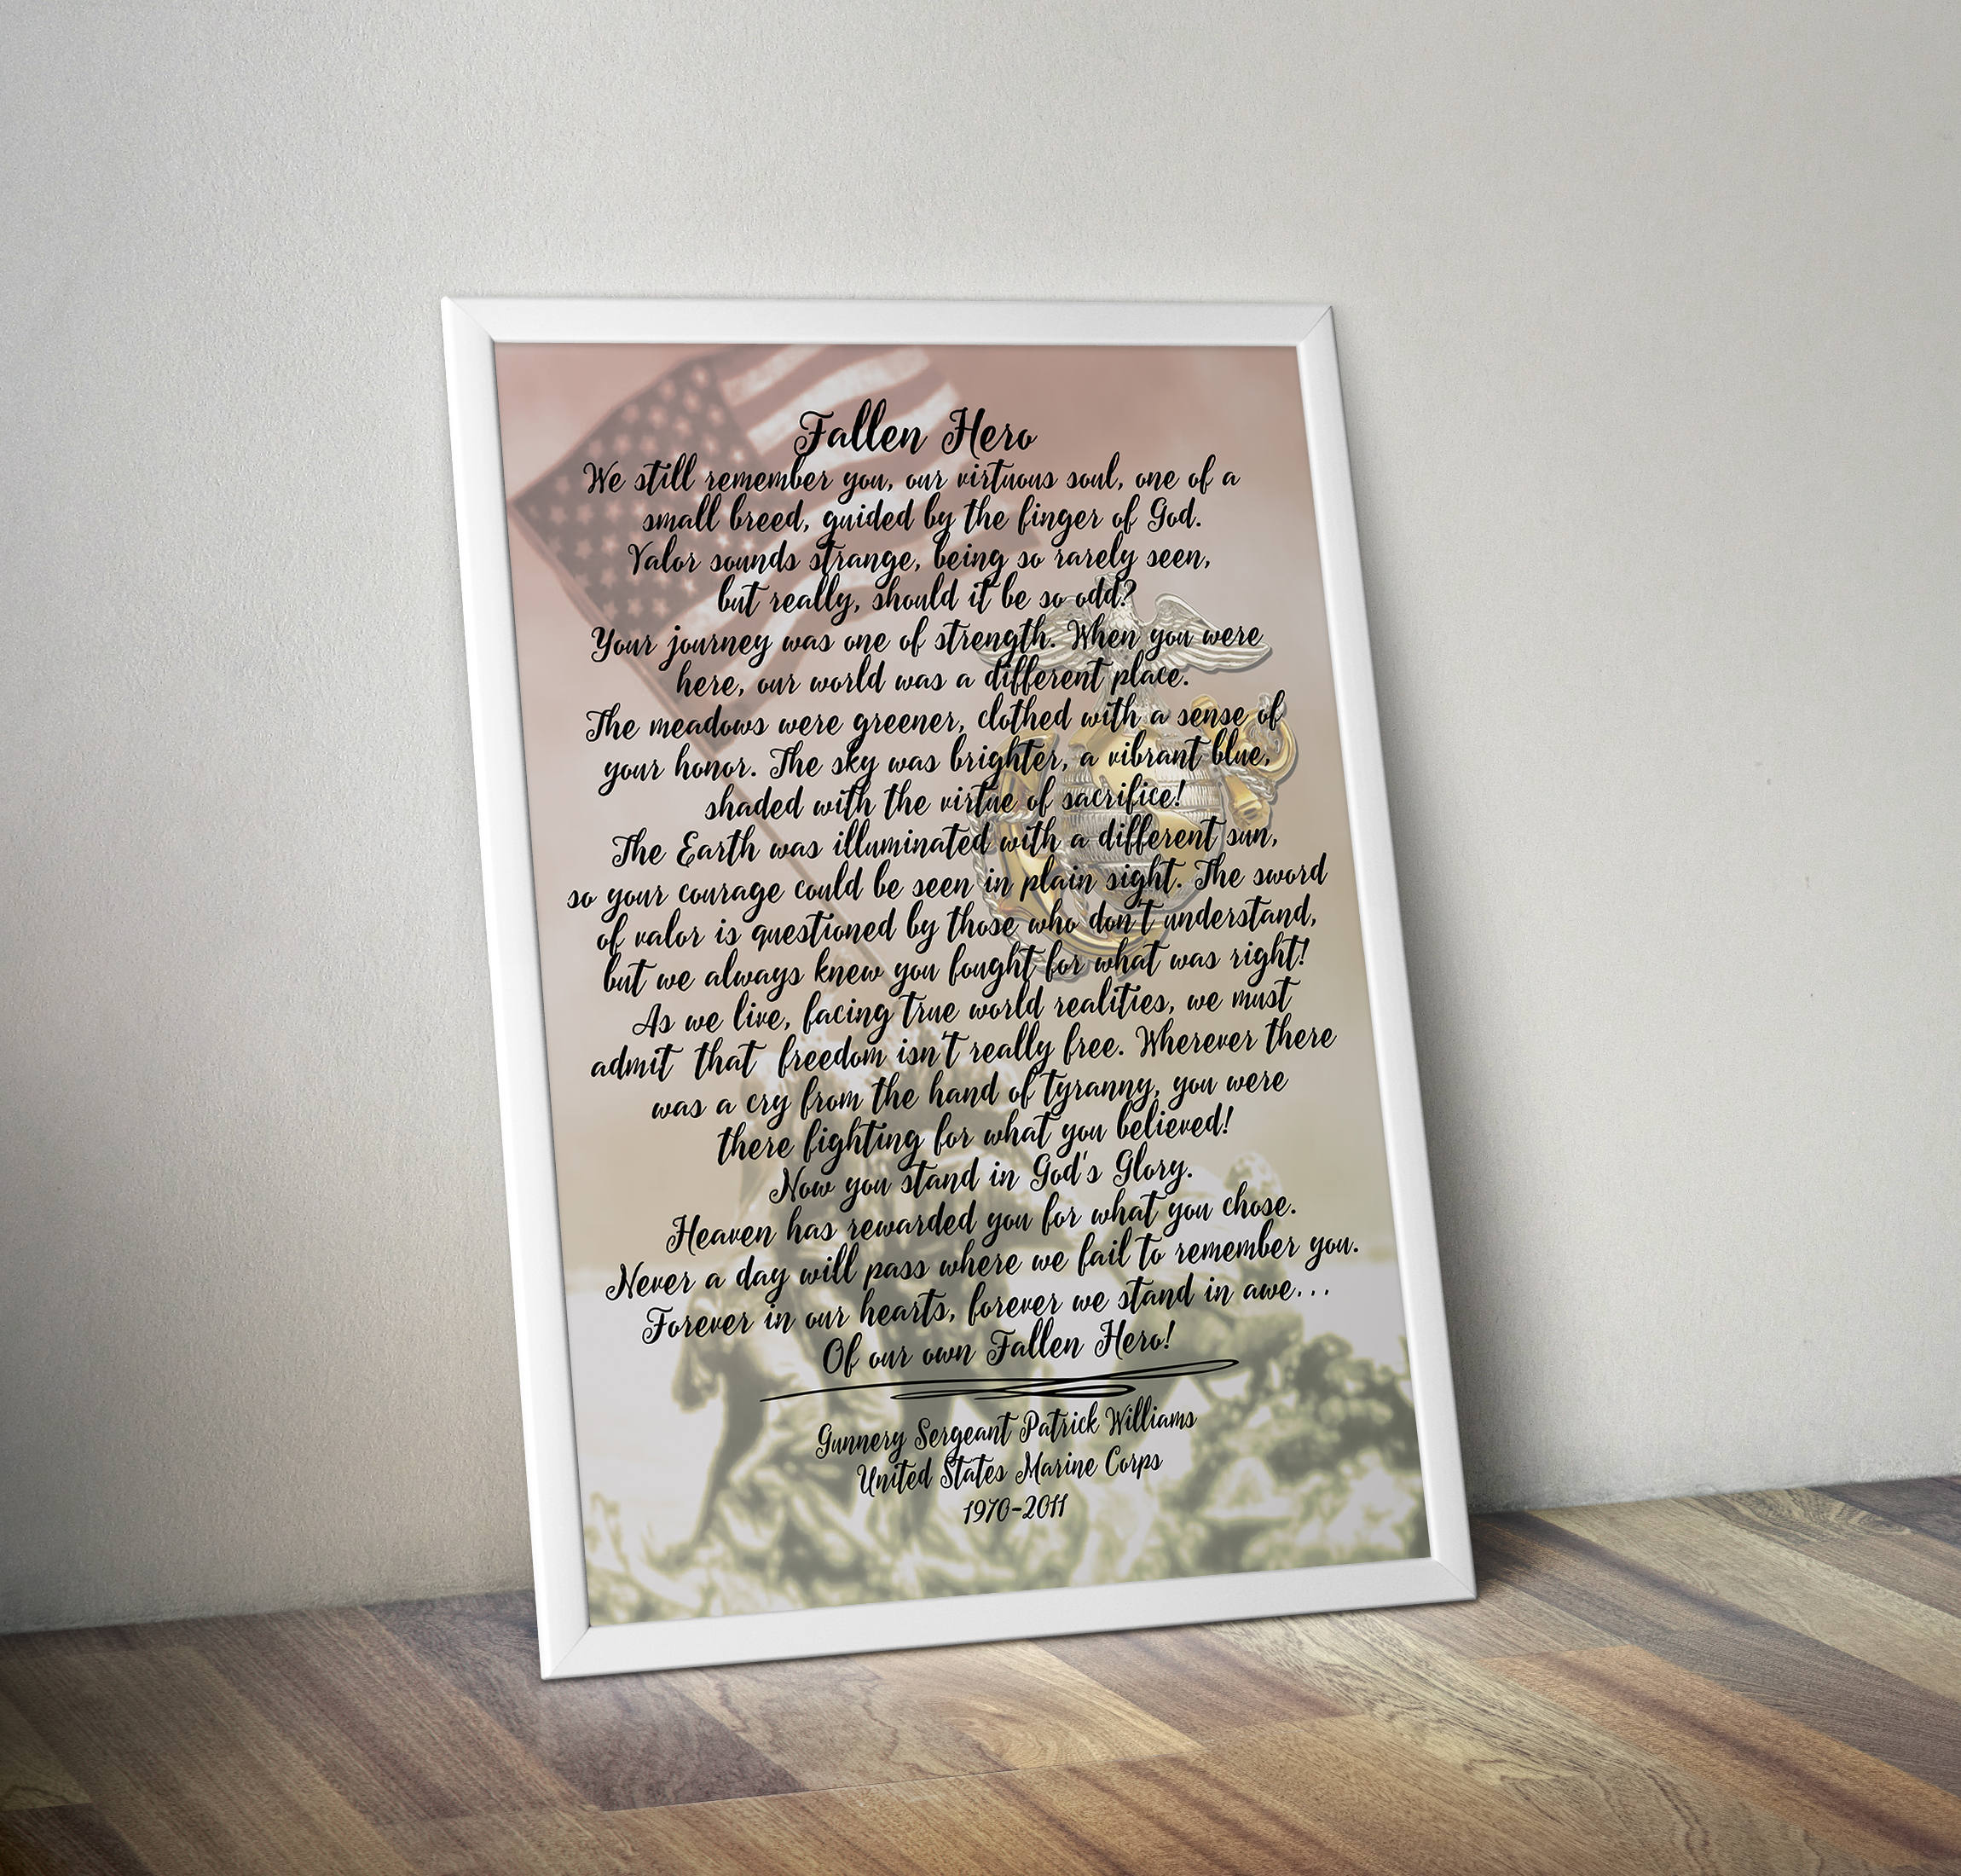 Fallen Hero
We still remember you, our virtuous soul, one of a
small breed, guided by the finger of God.
Valor sounds strange, being so rarely seen,
but really, should it be so odd?
Your journey was one of strength. When you were
here, our world was a different place.
The meadows were greener, clothed with a sense of
your honor. The sky was brighter, a vibrant blue,
shaded with the virtue of sacrifice!
The Earth was illuminated with a different sun,
so your courage could be seen in plain sight. The sword
of valor is questioned by those who don't understand,
but we always knew you fought for what was right!
As we live, facing true world realities, we must
admit that freedom isn't really free. Wherever there
was a cry from the hand of tyranny, you were
there fighting for what you believed!
Now you stand in God's Glory.
Heaven has rewarded you for what you chose.
Never a day will pass where we fail to remember you.
Forever in our hearts, forever we stand in awe...
Of our own Fallen Hero!
Gunnery Sergeant Patrick Williams
United States Marine Corps
1970-2011